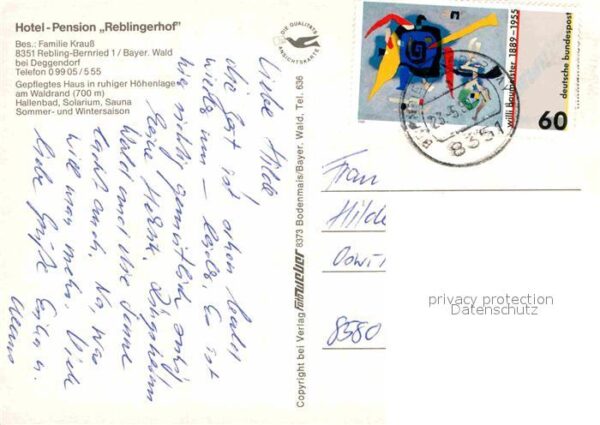 Hotel-Pension „Reblingerhof"
Bes.: Familie Krauß
8351 Rebling-Bernried 1 / Bayer. Wald
bei Deggendorf
Telefon 0 99 05 / 5 55
Gepflegtes Haus in ruhiger Höhenlage
am Waldrand (700 m)
Hallenbad, Solarium, Sauna
Sommer- und Wintersaison
Liebe Hilde
die Zeit ist schon bald
wieder um – leider. Es ist
hier richtig gemütlich
Wald und die Sonne
lacht auch. Na, was
will man mehr. Viele
liebe Grüße
DIE QUALITÄTS
ANSICHTSKARTE
Copyright bei Verlag 8373 Bodenmais/Bayer. Wald, Tel. 636
willi Baumeister 1889-1955
deutsche bundespost
60
8351
Frau
Hilde
8580
privacy protection
Datenschutz